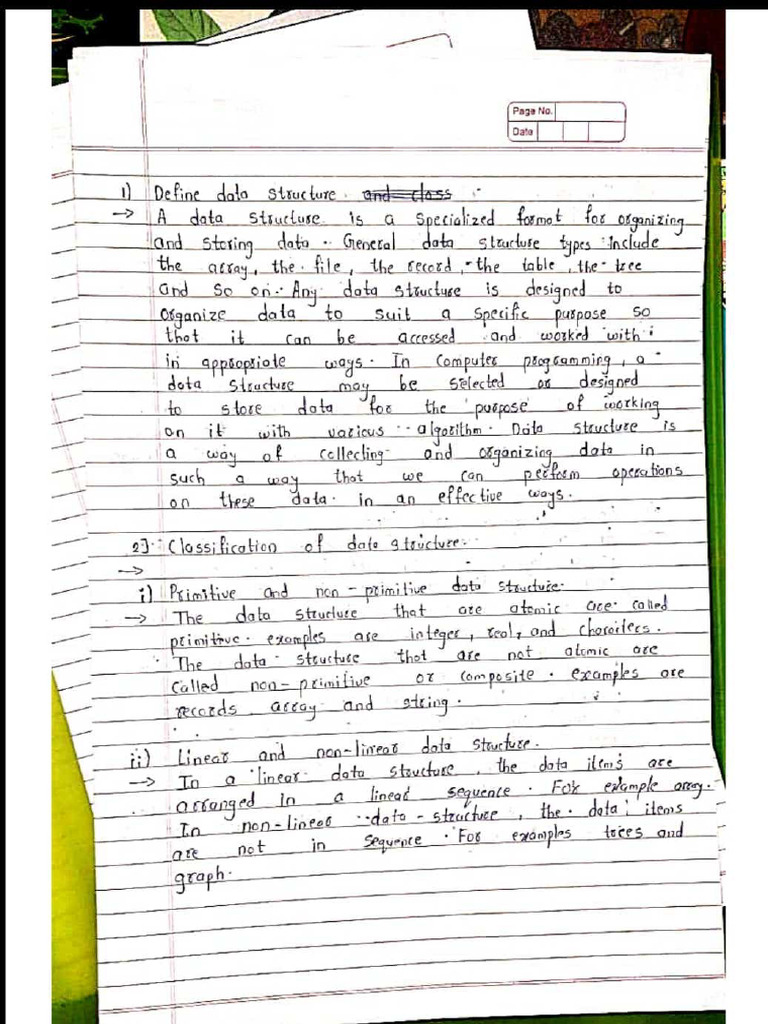 Page No.
Date
1) Define data structure. and class
→ A data structure is a specialized format for organizing
and storing data. General data structure types include
the array, the file, the record, the table, the tree
and so on. Any data structure is designed to
organize data to suit a specific purpose so
that it can be accessed and worked with
in appropriate ways. In computer programming, a
data structure may be selected or designed
to store data for the purpose of working
on it with various algorithm. Data structure is
a way of collecting and organizing data in
such a way that we can perform operations
on these data in an effective ways.
2] Classification of data structure.
→
i) Primitive and non-primitive data structure.
→ The data structure that are atomic are called
primitive. examples are integer, real, and charaiters.
The data structure that are not atomic are
called non-primitive or composite. examples are
records array and string.
ii) Linear and non-linear data structure.
→ In a linear data structure, the data items are
arranged in a linear sequence. For example array.
In non-linear data-structure, the data items
are not in sequence. For examples trees and
graph.